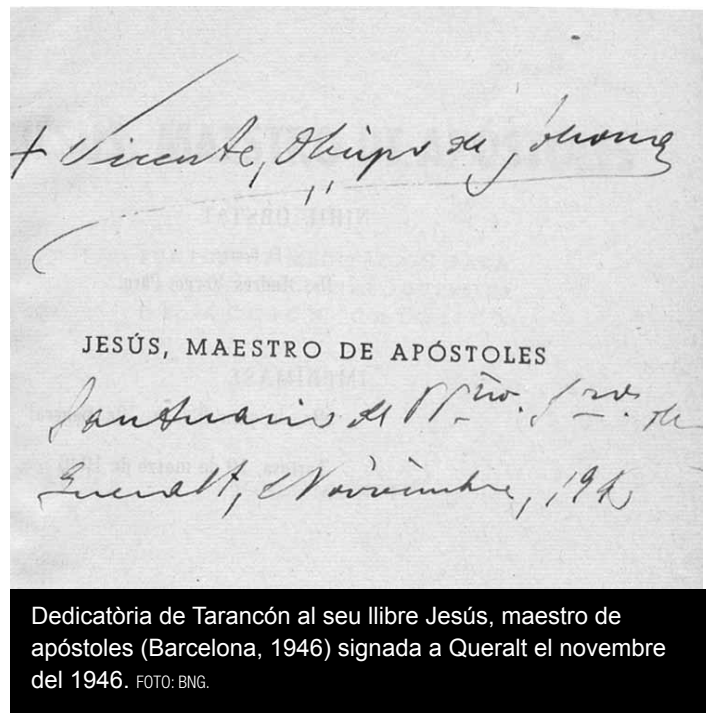 + Vicente, Obispo de Solsona
JESÚS, MAESTRO DE APÓSTOLES
Santuario de Ntra. Sra. de
Queralt, Noviembre, 1946
Dedicatòria de Tarancón al seu llibre Jesús, maestro de
apóstoles (Barcelona, 1946) signada a Queralt el novembre
del 1946. FOTO: BNG.